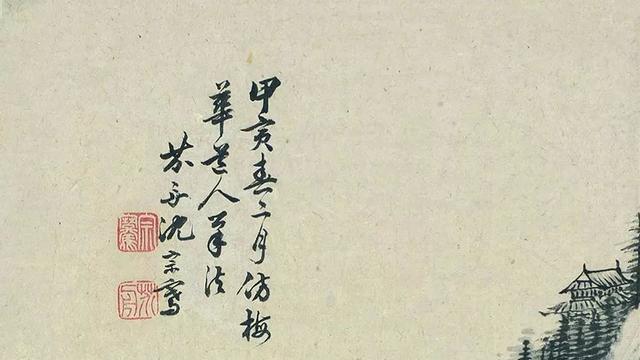 甲寅春二月仿梅
華道人筆法
芥舟沈宗騫
宗騫
芥舟